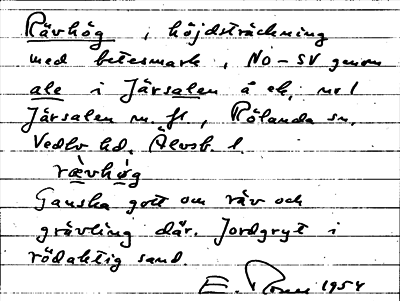 Rävhög, höjdsträckning
med betesmark, NO-SV genom
ale i Järsalen å ek, nr 1
Järsalen m. fl., Rölanda sn,
Vedbo hd. Älvsb. l.
rævhøg
Ganska gott om räv och
grävling där. Jordgryt i
rödaktig sand.
E. 1954